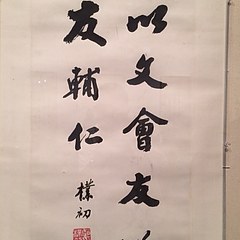 以文會友以
友輔仁
樸初